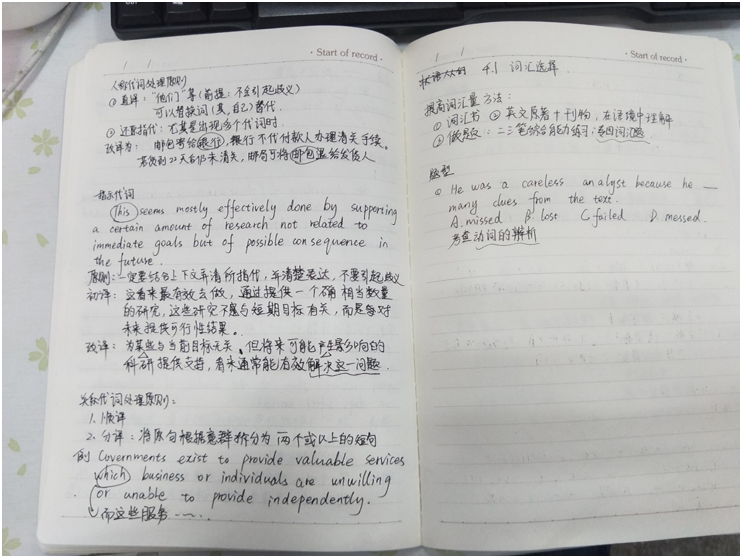 · Start of record ·
人称代词处理原则
① 直译："他们"等(前提：不会引起歧义)
可以替换词(其,自己)替代.
② 还原指代：尤其是出现多个代词时.
改译为： 邮包寄给银行,银行不代付款人办理清关手续。
若货到22天后仍未清关,邮局可将邮包退给发货人
指示代词
This seems mostly effectively done by supporting
a certain amount of research not related to
immediate goals but of possible consequence in
the future.
原则:一定要结合上下文弄清所指代,并清楚表达,不要引起歧义
初译：这看来最有效去做,通过提供一个确相当数量
的研究,这些研究不是与短期目标有关,而是每对
未来提供可行性结果。
改译：为某些与当前目标无关、但将来可能产生影响的
科研提供支持,看来通常能有效解决这一问题.
关系代词处理原则：
1. 顺译
2. 分译：将原句根据意群拆分为两个或以上的短句
例 Governments exist to provide valuable services
which business or individuals are unwilling
or unable to provide independently.
而这些服务……
· Start of record ·
4.1 词汇选择
提高词汇量方法：
① 词汇书 ② 英文原著+刊物,在语境中理解
③ 做题：二三笔综合能力练习:
题型
① He was a careless analyst because he __
many clues from the text.
A. missed B. lost C. failed D. messed.
考查动词的辨析